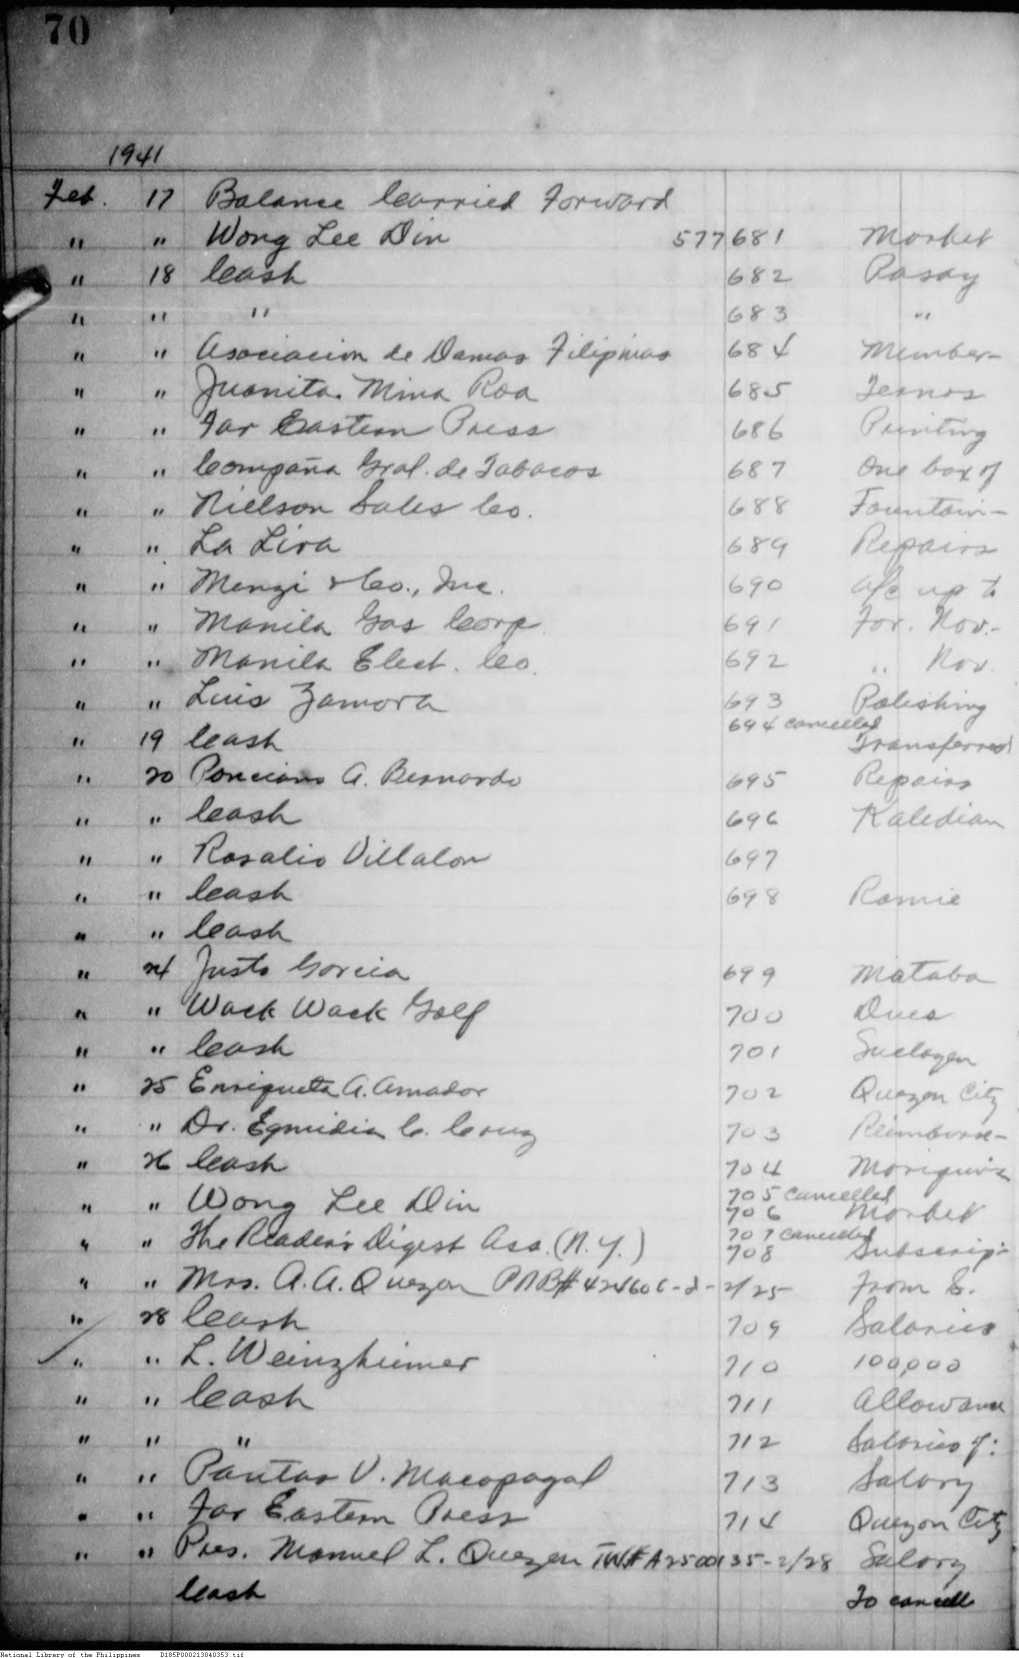 70
1941
Feb. 17 Balance Carried Forward
" " Wong Lee Din 577 681 Market
" 18 Cash 682 Pasay
" " " 683 "
" " Asociacion de Damas Filipinas 684 Member-
" " Juanita Mina Roa 685 Ternos
" " Far Eastern Press 686 Printing
" " Compañia Gral. de Tabacos 687 One box of
" " Nielson Sales Co. 688 Fountain-
" " La Lira 689 Repairs
" " Menzi & Co., Inc. 690 a/c up to
" " Manila Gas Corp. 691 For. Nov.-
" " Manila Elect. Co. 692 " Nov.
" " Luis Zamora 693 Polishing
694 cancelled
" 19 Cash Transferred
" 20 Ponciano A. Bernardo 695 Repairs
" " Cash 696 Kaledian
" " Rosalio Villalon 697
" " Cash 698 Ramie
" " Cash
" 24 Justo Garcia 699 Mataba
" " Wack Wack Golf 700 Dues
" " Cash 701
" 25 Enriqueta A. Amador 702 Quezon City
" " Dr. Egmidia C. Cruz 703 Reimburse-
" 26 Cash 704 Mariquina
705 cancelled
" " Wong Lee Din 706 Market
707 cancelled
" " The Reader's Digest Ass. (N.Y.) 708 Subscrip-
" " Mrs. A. A. Quezon PNB# 424606-d-2/25- from S.
" 28 Cash 709 Salaries
" " L. Weinzheimer 710 100,000
" " Cash 711 Allowance
" " " 712 Salaries of:
" " Pantas V. Macapagal 713 Salary
" " Far Eastern Press 714 Quezon City
" " Pres. Manuel L. Quezon TW# A2500135-2/28 Salary
Cash To cancell
National Library of the Philippines D185P000213040353.tif